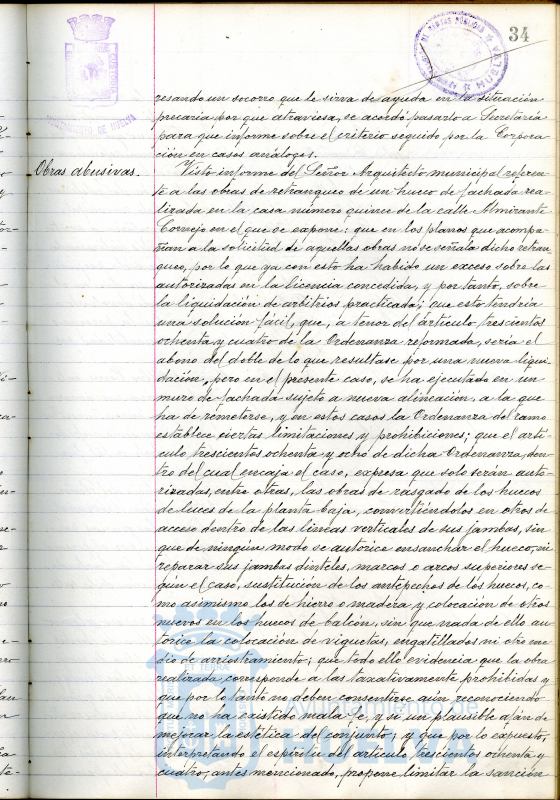 34
resando un socorro que le sirva de ayuda en la situación
pruaria por que atraviesa, se acordó pasarlo a Secretaría
para que informe sobre el criterio seguido por la Corpora-
ción en casos análogos.
Obras abusivas.
Visto informe del Señor Arquitecto municipal referen-
te a las obras de retranqueo de un hueco de fachada rea-
lizada en la casa número quince de la calle Almirante
Cornejo en el que se expone: que en los planos que acompa-
ñan a la solicitud de aquellas obras no se señala dicho retran-
queo, por lo que ya con esto ha habido un exceso sobre las
autorizadas en la licencia concedida, y por tanto, sobre
la liquidación de arbitrios practicada; que esto tendría
una solución fácil, que, a tenor del artículo trescientos
ochenta y cuatro de la Ordenanza reformada, sería el
abono del doble de lo que resultase por una nueva liqui-
dación, pero en el presente caso, se ha ejecutado en un
muro de fachada sujeto a nueva alineación, a la que
ha de remeterse, y en estos casos la Ordenanza del ramo
establece ciertas limitaciones y prohibiciones; que el artí-
culo trescientos ochenta y ocho de dicha Ordenanza, den-
tro del cual encaja el caso, expresa que solo serán auto-
rizadas, entre otras, las obras de rasgado de los huecos
de luces de la planta baja, convirtiéndolos en otros de
acceso dentro de las lineas verticales de sus jambas, sin
que de ningún modo se autorice ensanchar el hueco, ni
reparar sus jambas dinteles, marcos o arcos superiores se-
gún el caso, sustitución de los antepechos de los huecos, co-
mo asimismo los de hierro o madera y colocación de otros
nuevos en los huecos de balcón, sin que nada de ello au-
torice la colocación de viguetas, engatillados ni otro me-
dio de arriostramiento; que todo ello evidencia que la obra
realizada corresponde a las taxativamente prohibidas y
que por lo tanto no deben consentirse aún reconociendo
que no ha existido mala fe, y si un plausible afán de
mejorar la estética del conjunto; y que por lo expuesto,
interpretando el espíritu del artículo trescientos ochenta y
cuatro, antes mencionado, propone limitar la sanción
AYUNTAMIENTO DE HUELVA
Ayuntamiento de
HUELVA